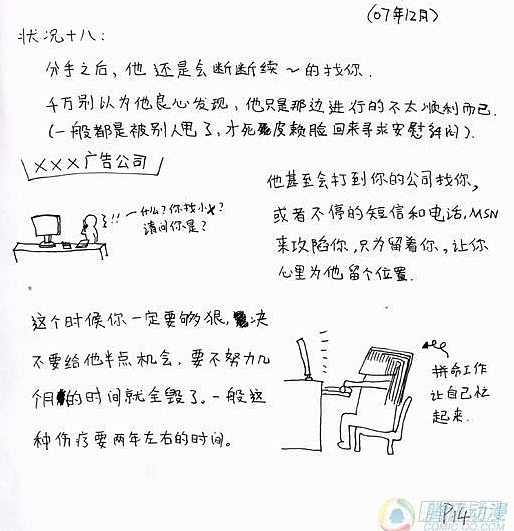 (07年12月)
状况十八:
分手之后、他还是会断断续~的找你.
千万别以为他良心发现,他只是那边进行的不太顺利而已.
(一般都是被别人甩了,才死皮赖脸回来寻求安慰)
XXX广告公司
!! 什么?你找小X?
请问你是?
他甚至会打到你的公司找你,
或者不停的短信和电话,MSN
来攻陷你,只为留着你,让你
心里为他留个位置.
这个时候你一定要够狠,决
不要给他半点机会,要不努力几
个月的时间就全毁了。一般这
种伤疗要两年左右的时间。
拼命工作
让自己忙
起来.
P14
腾讯动漫
COMIC.QQ.COM